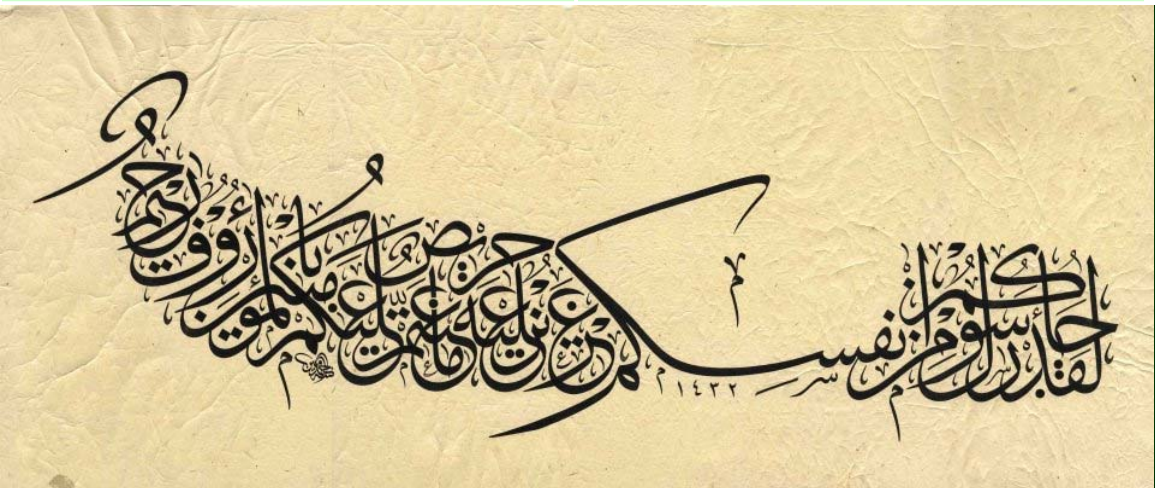 لقد جاءكم رسول من أنفسكم عزيز عليه ما عنتم حريص عليكم بالمؤمنين رؤوف رحيم
١٤٣٢